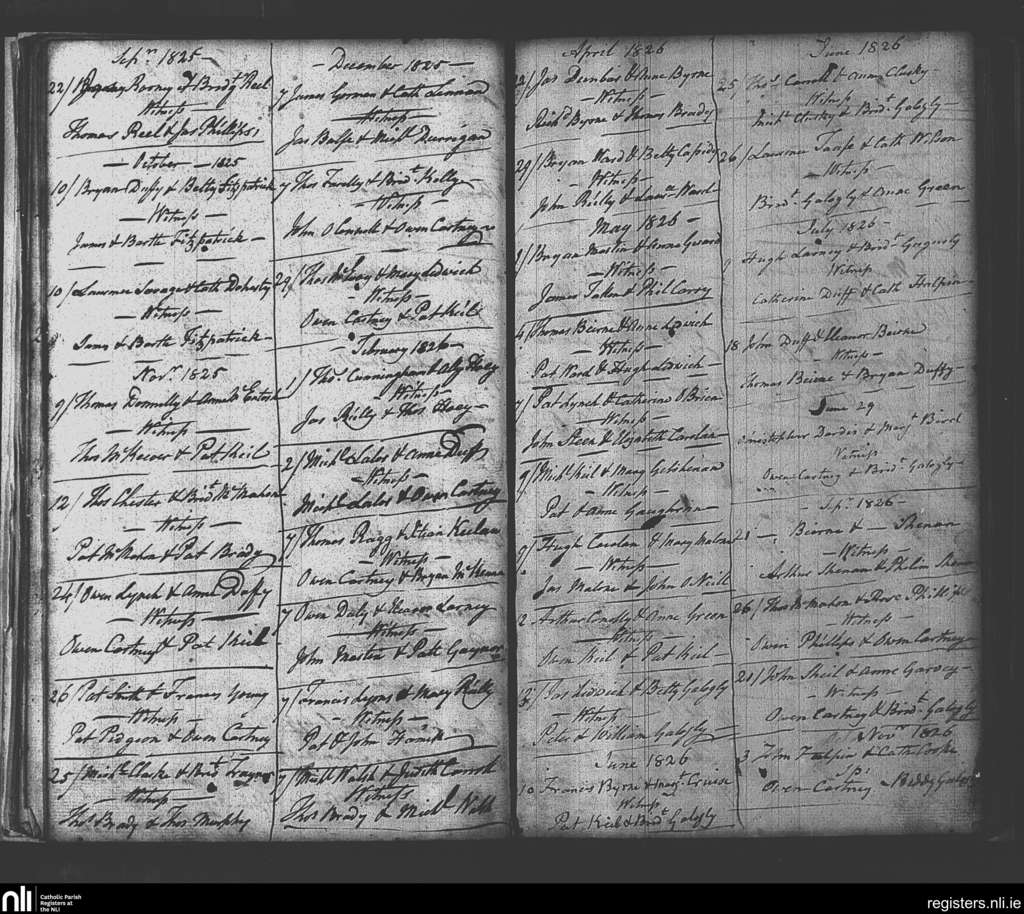 Sepr. 1825 —
22/ Barney & Bridgt Reel
Witness
Thomas Reel & Jas Phillips
— October — 1825
10/ Bryan Duffy & Betty Fitzpatrick
— Witness —
James & Barth Fitzpatrick —
10/ Lawrence Savage & Cath Doherty
— Witness —
James & Barth Fitzpatrick —
Novr. 1825
9/ Thomas Donnelly & Anne McEntosh
— Witness —
Thos McKeever & Pat Keil
12/ Thos Chester & Bridt McMahon
— Witness —
Pat McMahon & Pat Brady
24/ Owen Lynch & Anne Duffy
— Witness —
Owen Cartney & Pat Keil
26 Pat Smith & Frances Young
— Witness —
Pat Pidgeon & Owen Cartney
25/ Michl. Clarke & Bridt Traynor
— Witness —
Thos Brady & Thos Murphy
— December 1825 —
7 James Gorman & Cath Lennard
— Witness —
Jas & Michl Durrigan
7 Thos & Bridt Kelly —
— Witness —
John OConnell & Owen Cartney
29/ Thos McEvoy & Mary Ledwich
— Witness —
Owen Cartney & Pat Keil
— February 1826 —
1/ Thos. Cunningham & Aly Hoey
— Witness —
Jas Reilly & Thos Hoey —
2/ Michl. Lalor & Anne Duff
— Witness —
Michl. Lalor & Owen Cartney
7/ Thomas Ragg & Keelan
— Witness —
Owen Cartney & Bryan McKenna
7/ Owen Daly & Larney
— Witness —
John Martin & Patk Gaynor
7/ Francis Lyons & Mary Reilly
— Witness —
Pat & John
7/ Michl Walsh & Judith Carroll
Witness
Thos Brady & Michl Walsh
April 1826
12/ Jas Dunbar & Anne Byrne
— Witness —
Richd Byrne & Thomas Brady
29/ Bryan Ward & Betty Cassidy
— Witness —
John Reilly & Ward
May 1826 —
1/ Bryan Martin & Anne
— Witness —
James Tallon & Phil Corry
4/ Thomas Beirne & Anne Ledwich
— Witness —
Pat Ward & Hugh Ledwich —
7/ Pat Lynch & Catherine OBrien
— Witness —
John Steen & Elizabeth Carolan
9/ Michl Keil & Mary
— Witness —
Pat & Anne Gaughran
9/ Hugh Carolan & Mary Malone
— Witness —
Jas Malone & John ONeill
2 Arthur & Anne Green
— Witness —
Owen Keil & Pat Keil
/ Jas Ledwich & Betty Galogly
— Witness —
Peter & William Galogly
June 1826
10 Francis Byrne & Margt Cruise
Witness
Pat Keil & Bridt Galogly
June 1826
25 Thos. Carroll & Anne Clusky
Witness
Michl Clusky & Bridt. Galogly —
26/ Lawrence & Cath Wilson
— Witness —
Bridt. Galogly & Green
July 1826 —
Hugh Larney & Bridt
Witness
Catherine Duff & Cath Halpin
18 John Duff & Eleanor Beirne
— Witness —
Thomas Beirne & Bryan Duffy
June 29
Christopher Dardis & Margt Bird
Witness
Owen Cartney & Bridt. Galogly —
— Sepr. 1826 —
21 —. Beirne & — Shenan
— Witness —
Arthur Shenan & Phelim Shenan
26/ Thos McMahon & Rose Phillips
— Witness —
Owen Phillips & Owen Cartney
21/ John Sheil & Anne Garvey —
— Witness —
Owen Cartney & Bridt. Galogly
Novr 1826
3 John Halpin & Cath Cooke
Sp:
Owen Cartney & Biddy Galogly
nli
Catholic Parish
Registers at
the NLI
registers.nli.ie